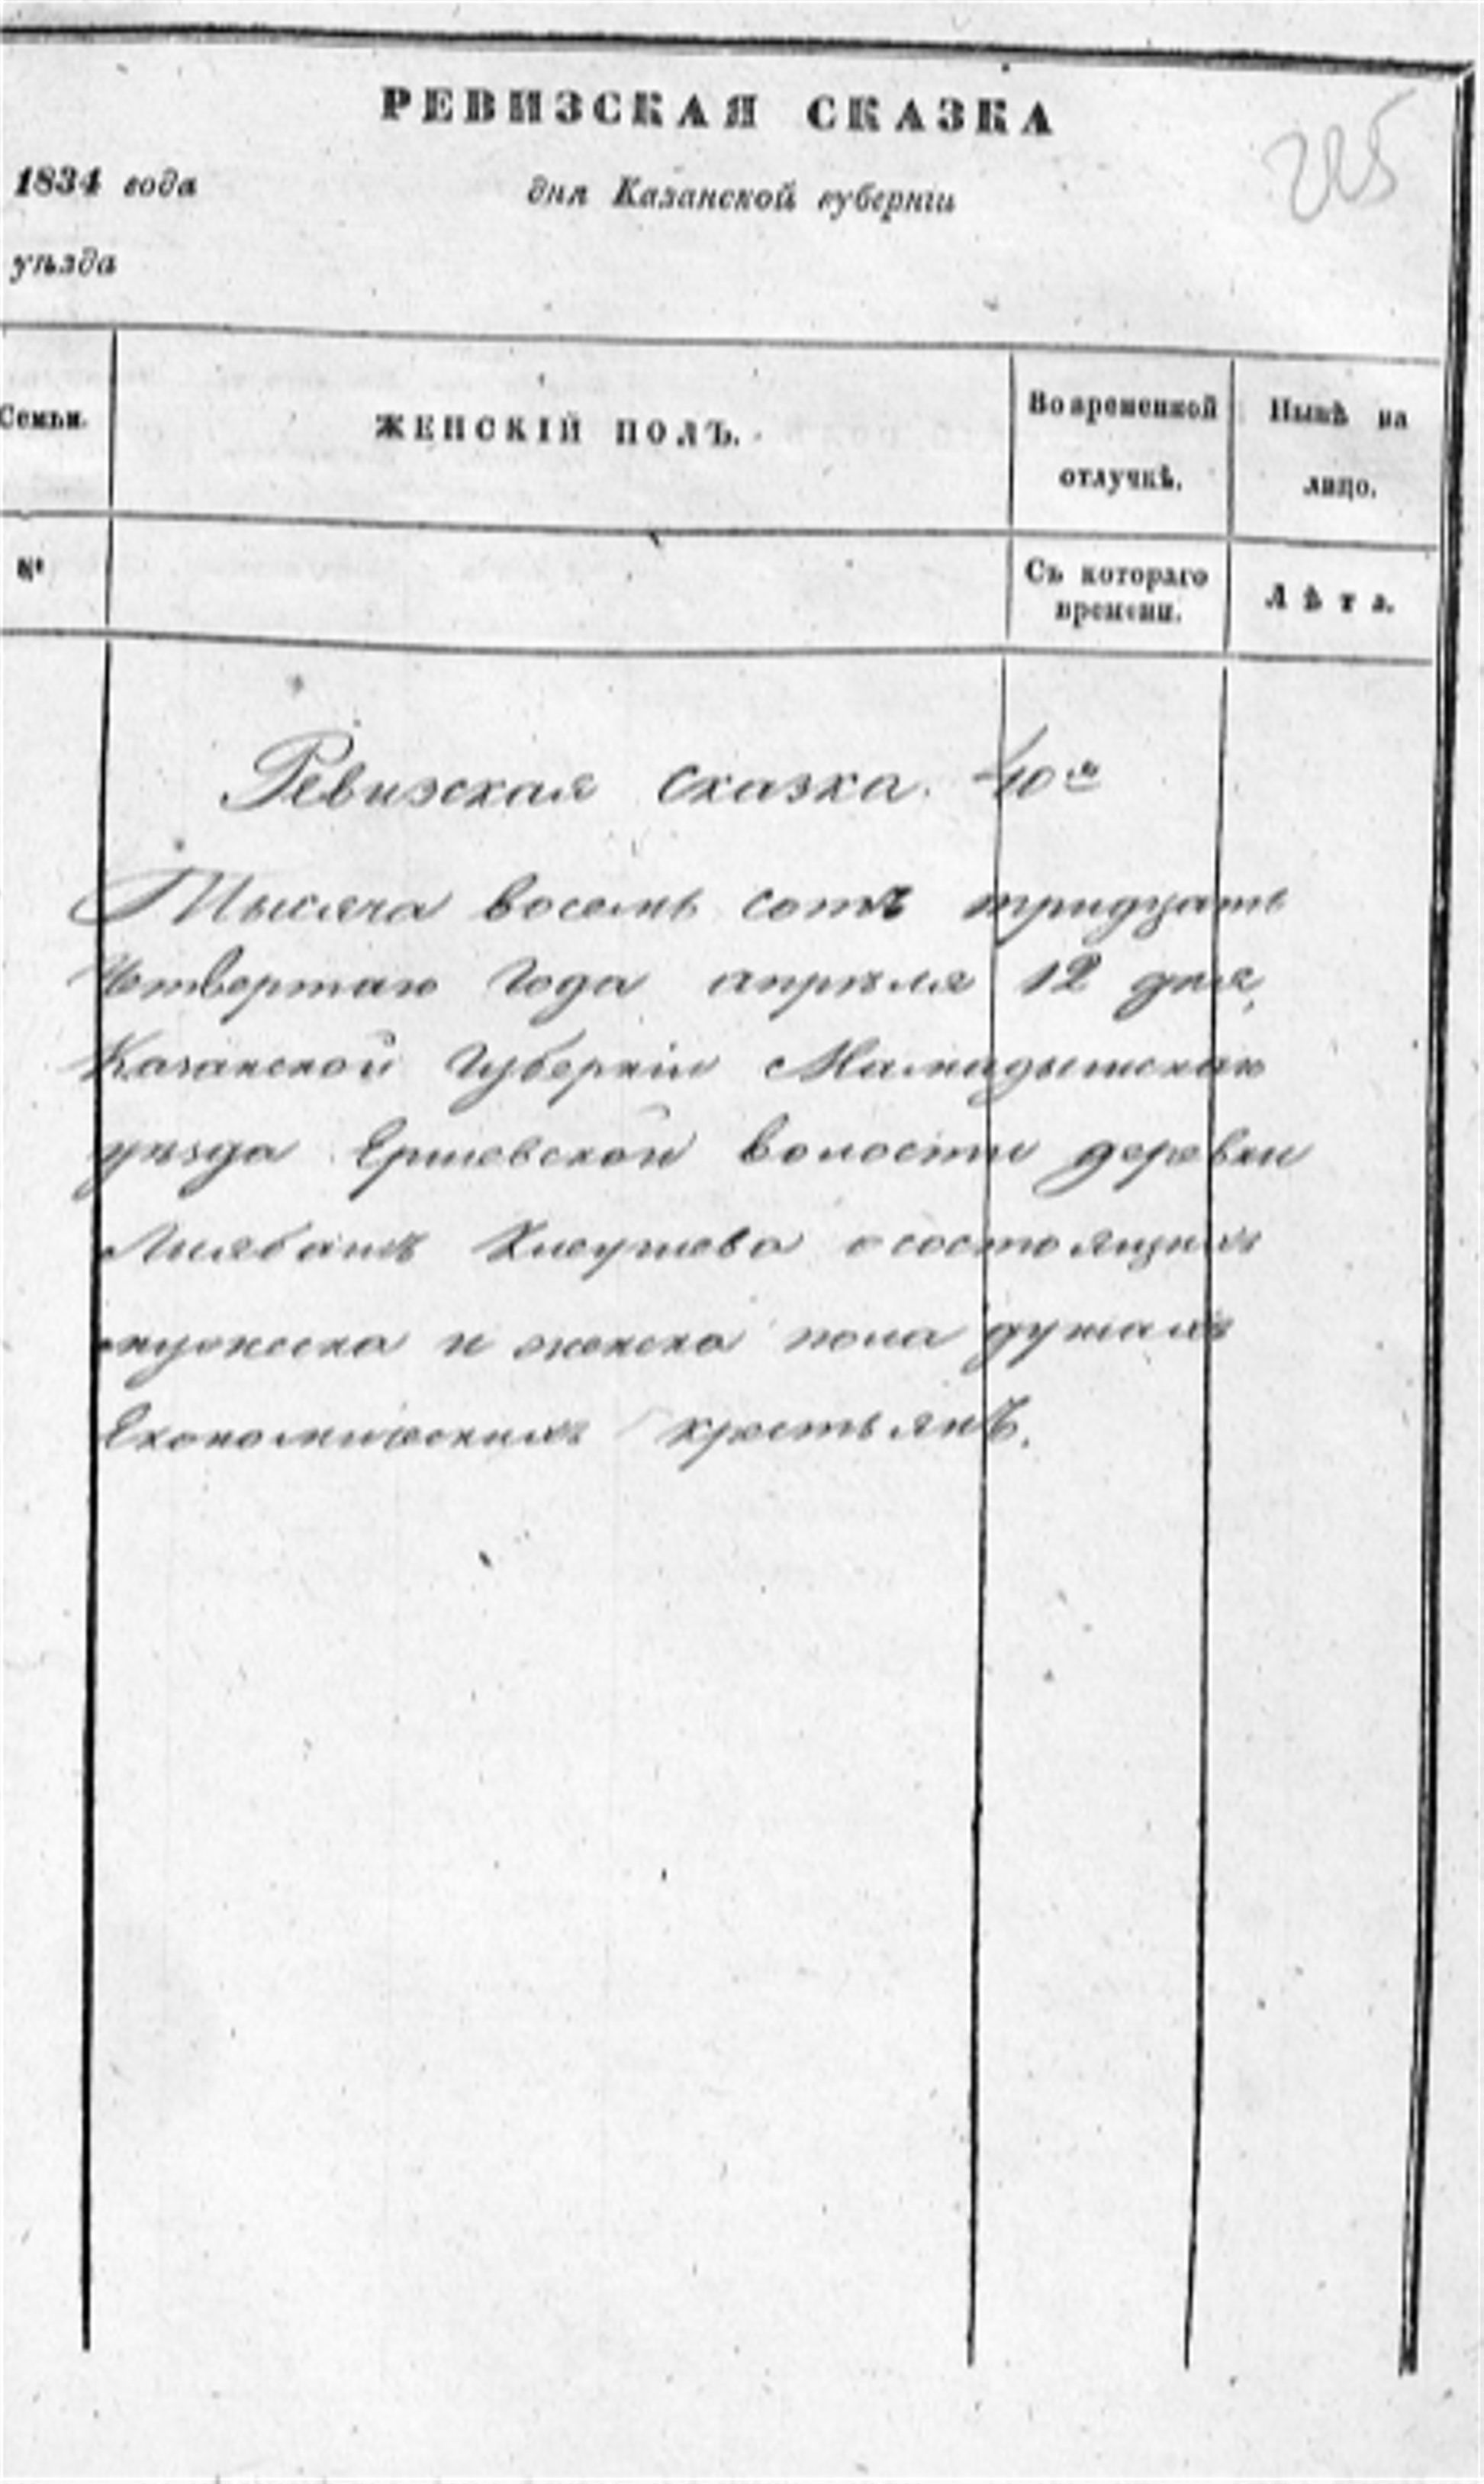 РЕВИЗСКАЯ СКАЗКА
225
1834 года дня Казанской губерніи
уѣзда
Семьи. ЖЕНСКІЙ ПОЛЪ. Во временной отлучкѣ. Нынѣ на лицо.
№ Съ котораго времени. Лѣта.
Ревизская сказка. 10я
Тысяча восемь сотъ тридцать
Четвертаго года апрѣля 12 дня,
Казанской Губерніи Мамадышскаго
уѣзда Ершевской волости деревни
о состоящихъ
мужеска и женска пола душахъ
Економическихъ крестьянъ.